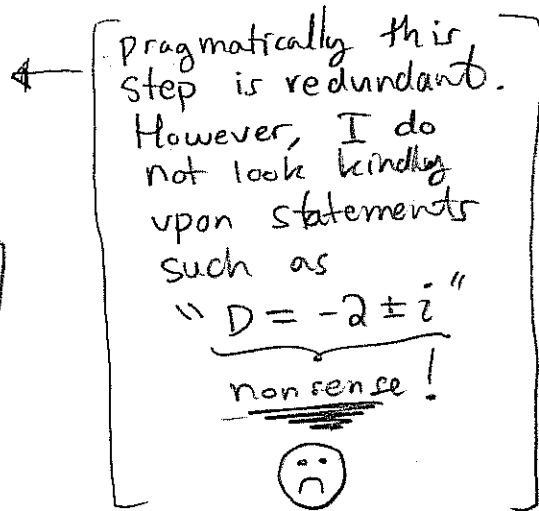 pragmatically this
step is redundant.
However, I do
not look kindly
upon statements
such as
"D = -2 ± i"
nonsense!